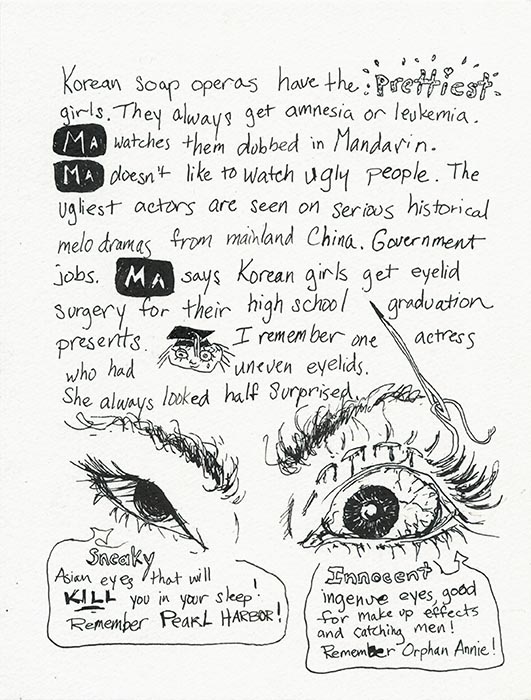 Korean soap operas have the Prettiest
girls. They always get amnesia or leukemia.
MA watches them dubbed in Mandarin.
MA doesn't like to watch ugly people. The
ugliest actors are seen on serious historical
melodramas from mainland China. Government
jobs. MA says Korean girls get eyelid
surgery for their high school graduation
presents. I remember one actress
who had uneven eyelids.
She always looked half surprised.
Sneaky
Asian eyes that will
KILL you in your sleep!
Remember PEARL HARBOR!
Innocent
ingenue eyes, good
for make up effects
and catching men!
Remember Orphan Annie!